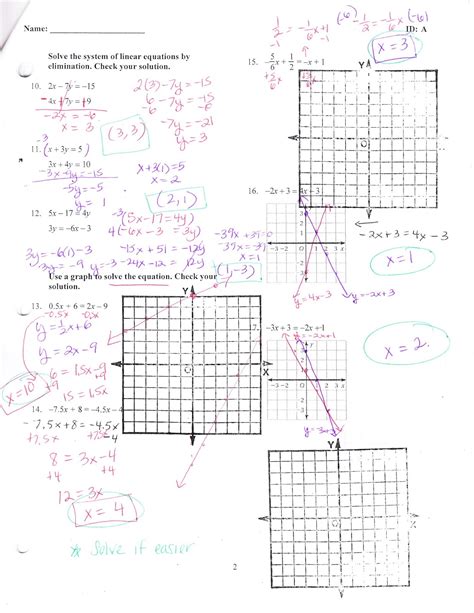 Name:
ID: A
Solve the system of linear equations by
elimination. Check your solution.
10. 2x − 7y = −15
−4x + 7y = +9
−2x = −6
x = 3
2(3) − 7y = −15
6 − 7y = −15
−6 −6
−7y = −21
y = 3
(3, 3)
−3
11. (x + 3y = 5)
3x + 4y = 10
−3x −9y = −15
−5y = −5
y = 1
x + 3(1) = 5
x = 2
(2, 1)
12. 5x − 17 = 4y
3y = −6x − 3
−3(5x − 17 = 4y)
4(−6x − 3 = 3y)
−15x + 51 = −12y
−24x − 12 = 12y
−39x + 39 = 0
−39x = −39
x = 1
3y = −6(1) − 3
3y = −9 y = −3
(1, −3)
Use a graph to solve the equation. Check your
solution.
13. 0.5x + 6 = 2x − 9
−0.5x −0.5x
y = ½x + 6
y = 2x − 9
6 = 1.5x − 9
+9 +9
15 = 1.5x
x = 10
14. −7.5x + 8 = −4.5x − 4
−7.5x + 8 = −4.5x − 4
+7.5x +7.5x
8 = 3x − 4
+4 +4
12 = 3x
x = 4
☆ Solve if easier
15. 5/6 x + 1/2 = −x + 3
1/2 = −1/6 x + 1
−1 −1
(−6) −1/2 = −1/6 x (−6)
x = 3
16. −2x + 3 = 4x − 3
−2x + 3 = 4x − 3
x = 1
y = 4x − 3
y = −2x + 3
17. −3x + 3 = −2x + 1
y = −2x + 1
x = 2
2